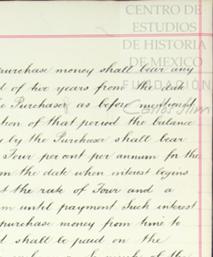 CENTRO DE
ESTUDIOS
DE HISTORIA
DE MEXICO
purchase money shall bear any
d of two years from the date
e Purchaser as before mentioned
tion of that period the balance
y by the Purchaser shall bear
Four per cent per annum for the
m the date when interest begins
t the rate of Four and a
m until payment Such interest
purchase money from time to
t shall be paid on the